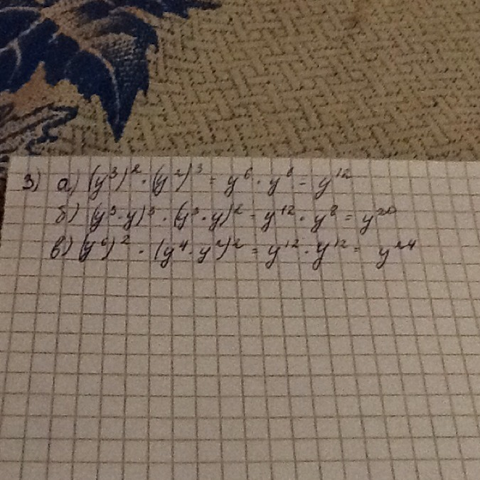 3) а) (y³)² · (y²)³ = y⁶ · y⁶ = y¹²
б) (y³·y)³ · (y³·y)² = y¹² · y⁸ = y²⁰
в) (y⁶)² · (y⁴·y²)² = y¹² · y¹² = y²⁴